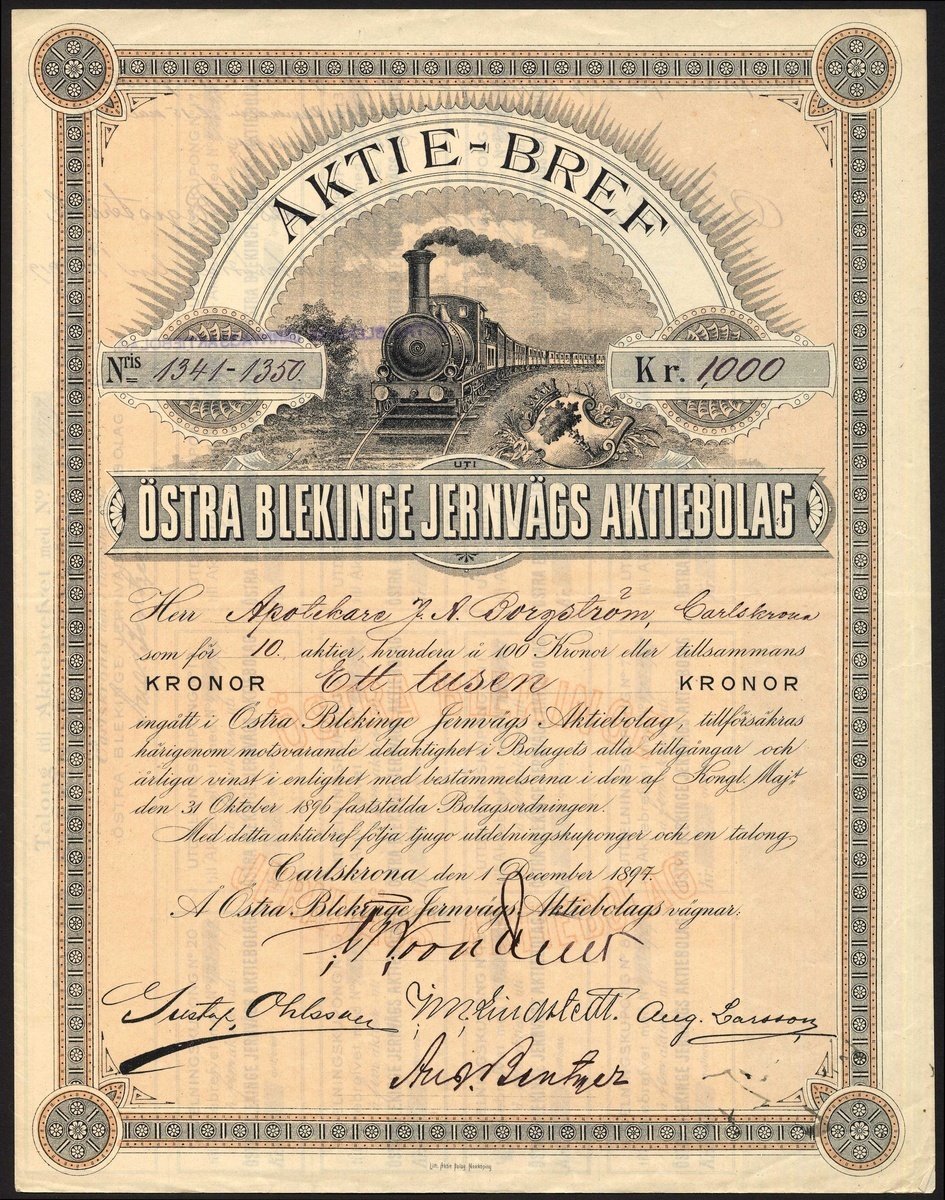 AKTIE-BREF
Nris 1341-1350.
Kr. 1,000
UTI
ÖSTRA BLEKINGE JERNVÄGS AKTIEBOLAG
Herr Apotekare J. A. Borgström, Carlskrona
som för 10 aktier, hvardera à 100 Kronor eller tillsammans
KRONOR Ett tusen KRONOR
ingått i Östra Blekinge Jernvägs Aktiebolag, tillförsäkras
härigenom motsvarande delaktighet i Bolagets alla tillgångar och
årliga vinst i enlighet med bestämmelserna i den af Kongl. Maj:t
den 31 Oktober 1896 faststälda Bolagsordningen.
Med detta aktiebref följa tjugo utdelningskuponger och en talong.
Carlskrona den 1 December 1897.
Å Östra Blekinge Jernvägs Aktiebolags vägnar:
Gustaf Ohlsson J M Lindstedt. Aug. Larsson
And. Bentzer
Lith. Aktie Bolag Norrköping